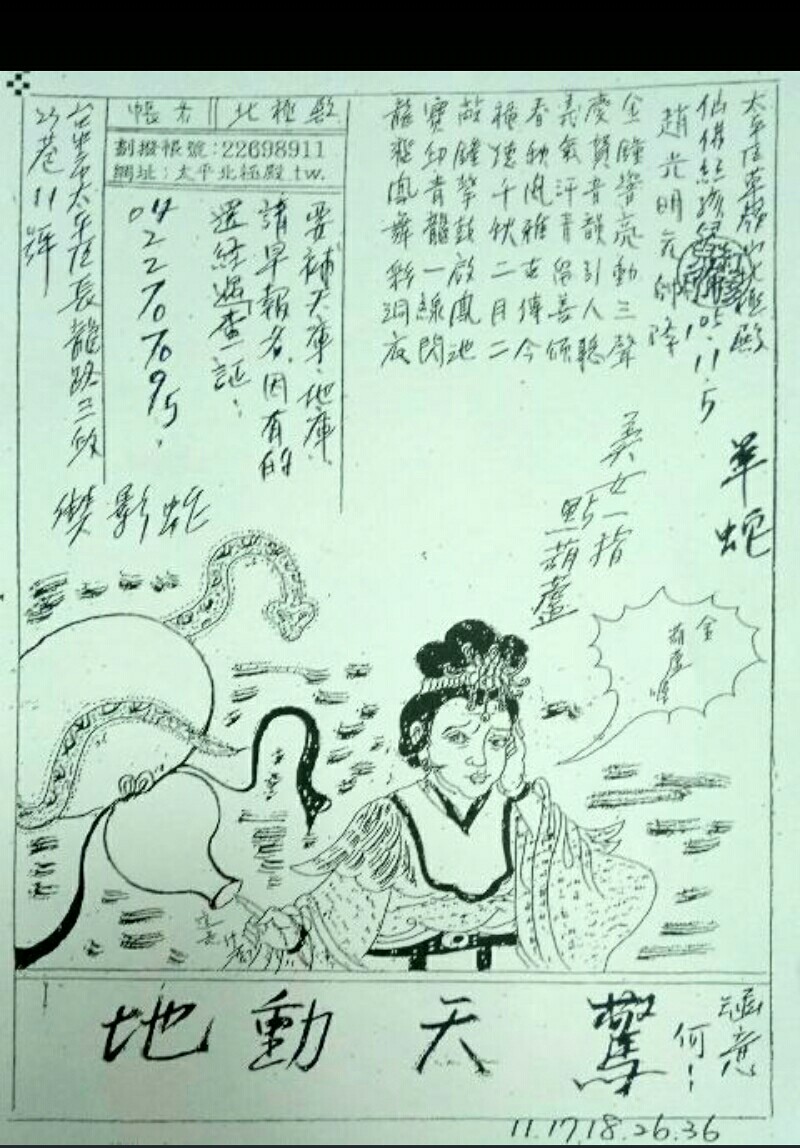 太平區車籠山北極殿
105.11.5
趙元明元帥降
金鐘響亮動三聲
慶賀音韻引人聽
義氣汗青留善頌
春秋風雅古傳今
積德千秋二月二
敲鐘擊鼓啟鳳池
寶印青龍一線閃
龍飛鳳舞彩洞夜
帳名 北極殿
劃撥帳號:22698911
網址:太平北極殿.tw.
要補天庫、地庫
請早報名,因有的
還經過查証!
04 22707095.
台中市太平區長龍路三段
23巷11號
羊蛇
美女一指
點葫蘆
變影蛇
金
葫蘆
涵意
何!
驚天動地
11.17.18.26.36